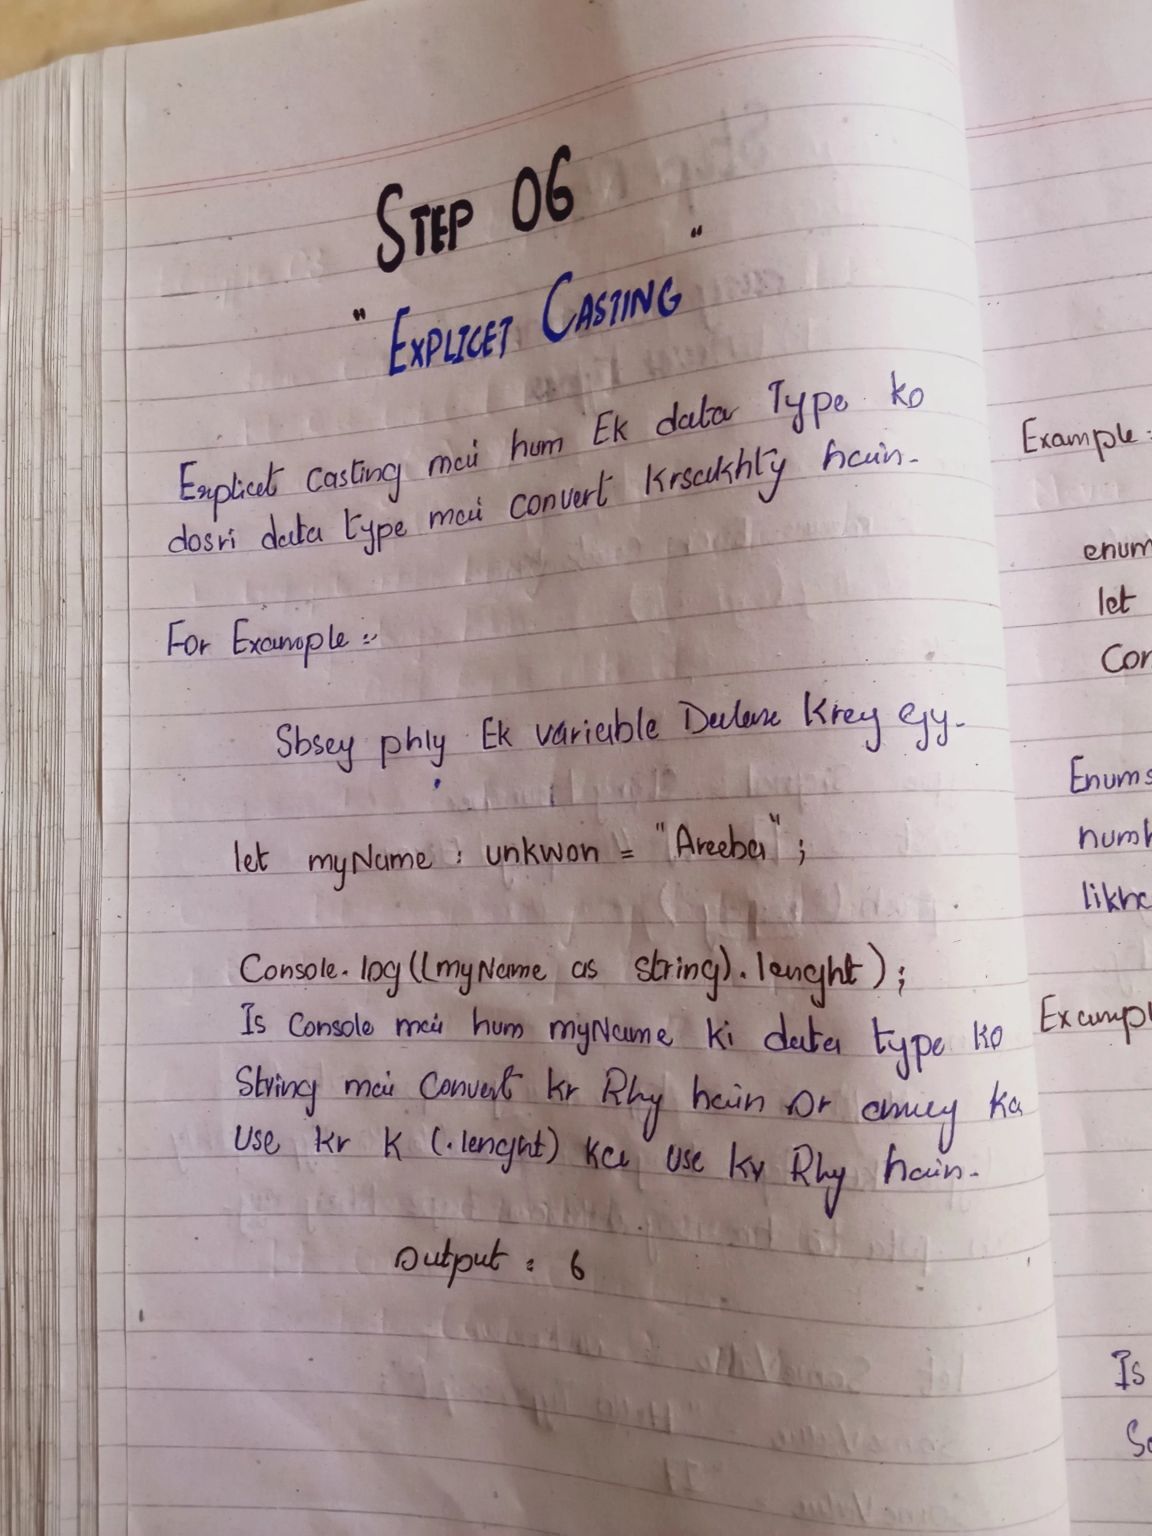 STEP 06
" EXPLICET CASTING "
Explicet Casting mai hum Ek data Type ko
dosri data type mai convert Krsakhty hain.
For Example :-
Sbsey phly Ek variable Declare Krey gy.
let myName : unkwon = "Areeba" ;
Console.log((myName as string).lenght) ;
Is Console mai hum myName ki data type ko
String mai Convert kr Rhy hain Or ka
Use kr k (.lenght) ka use kr Rhy hain.
Output : 6
Example :
enum
let
Con
Enums
numb
likhe
Exampl
Is
So